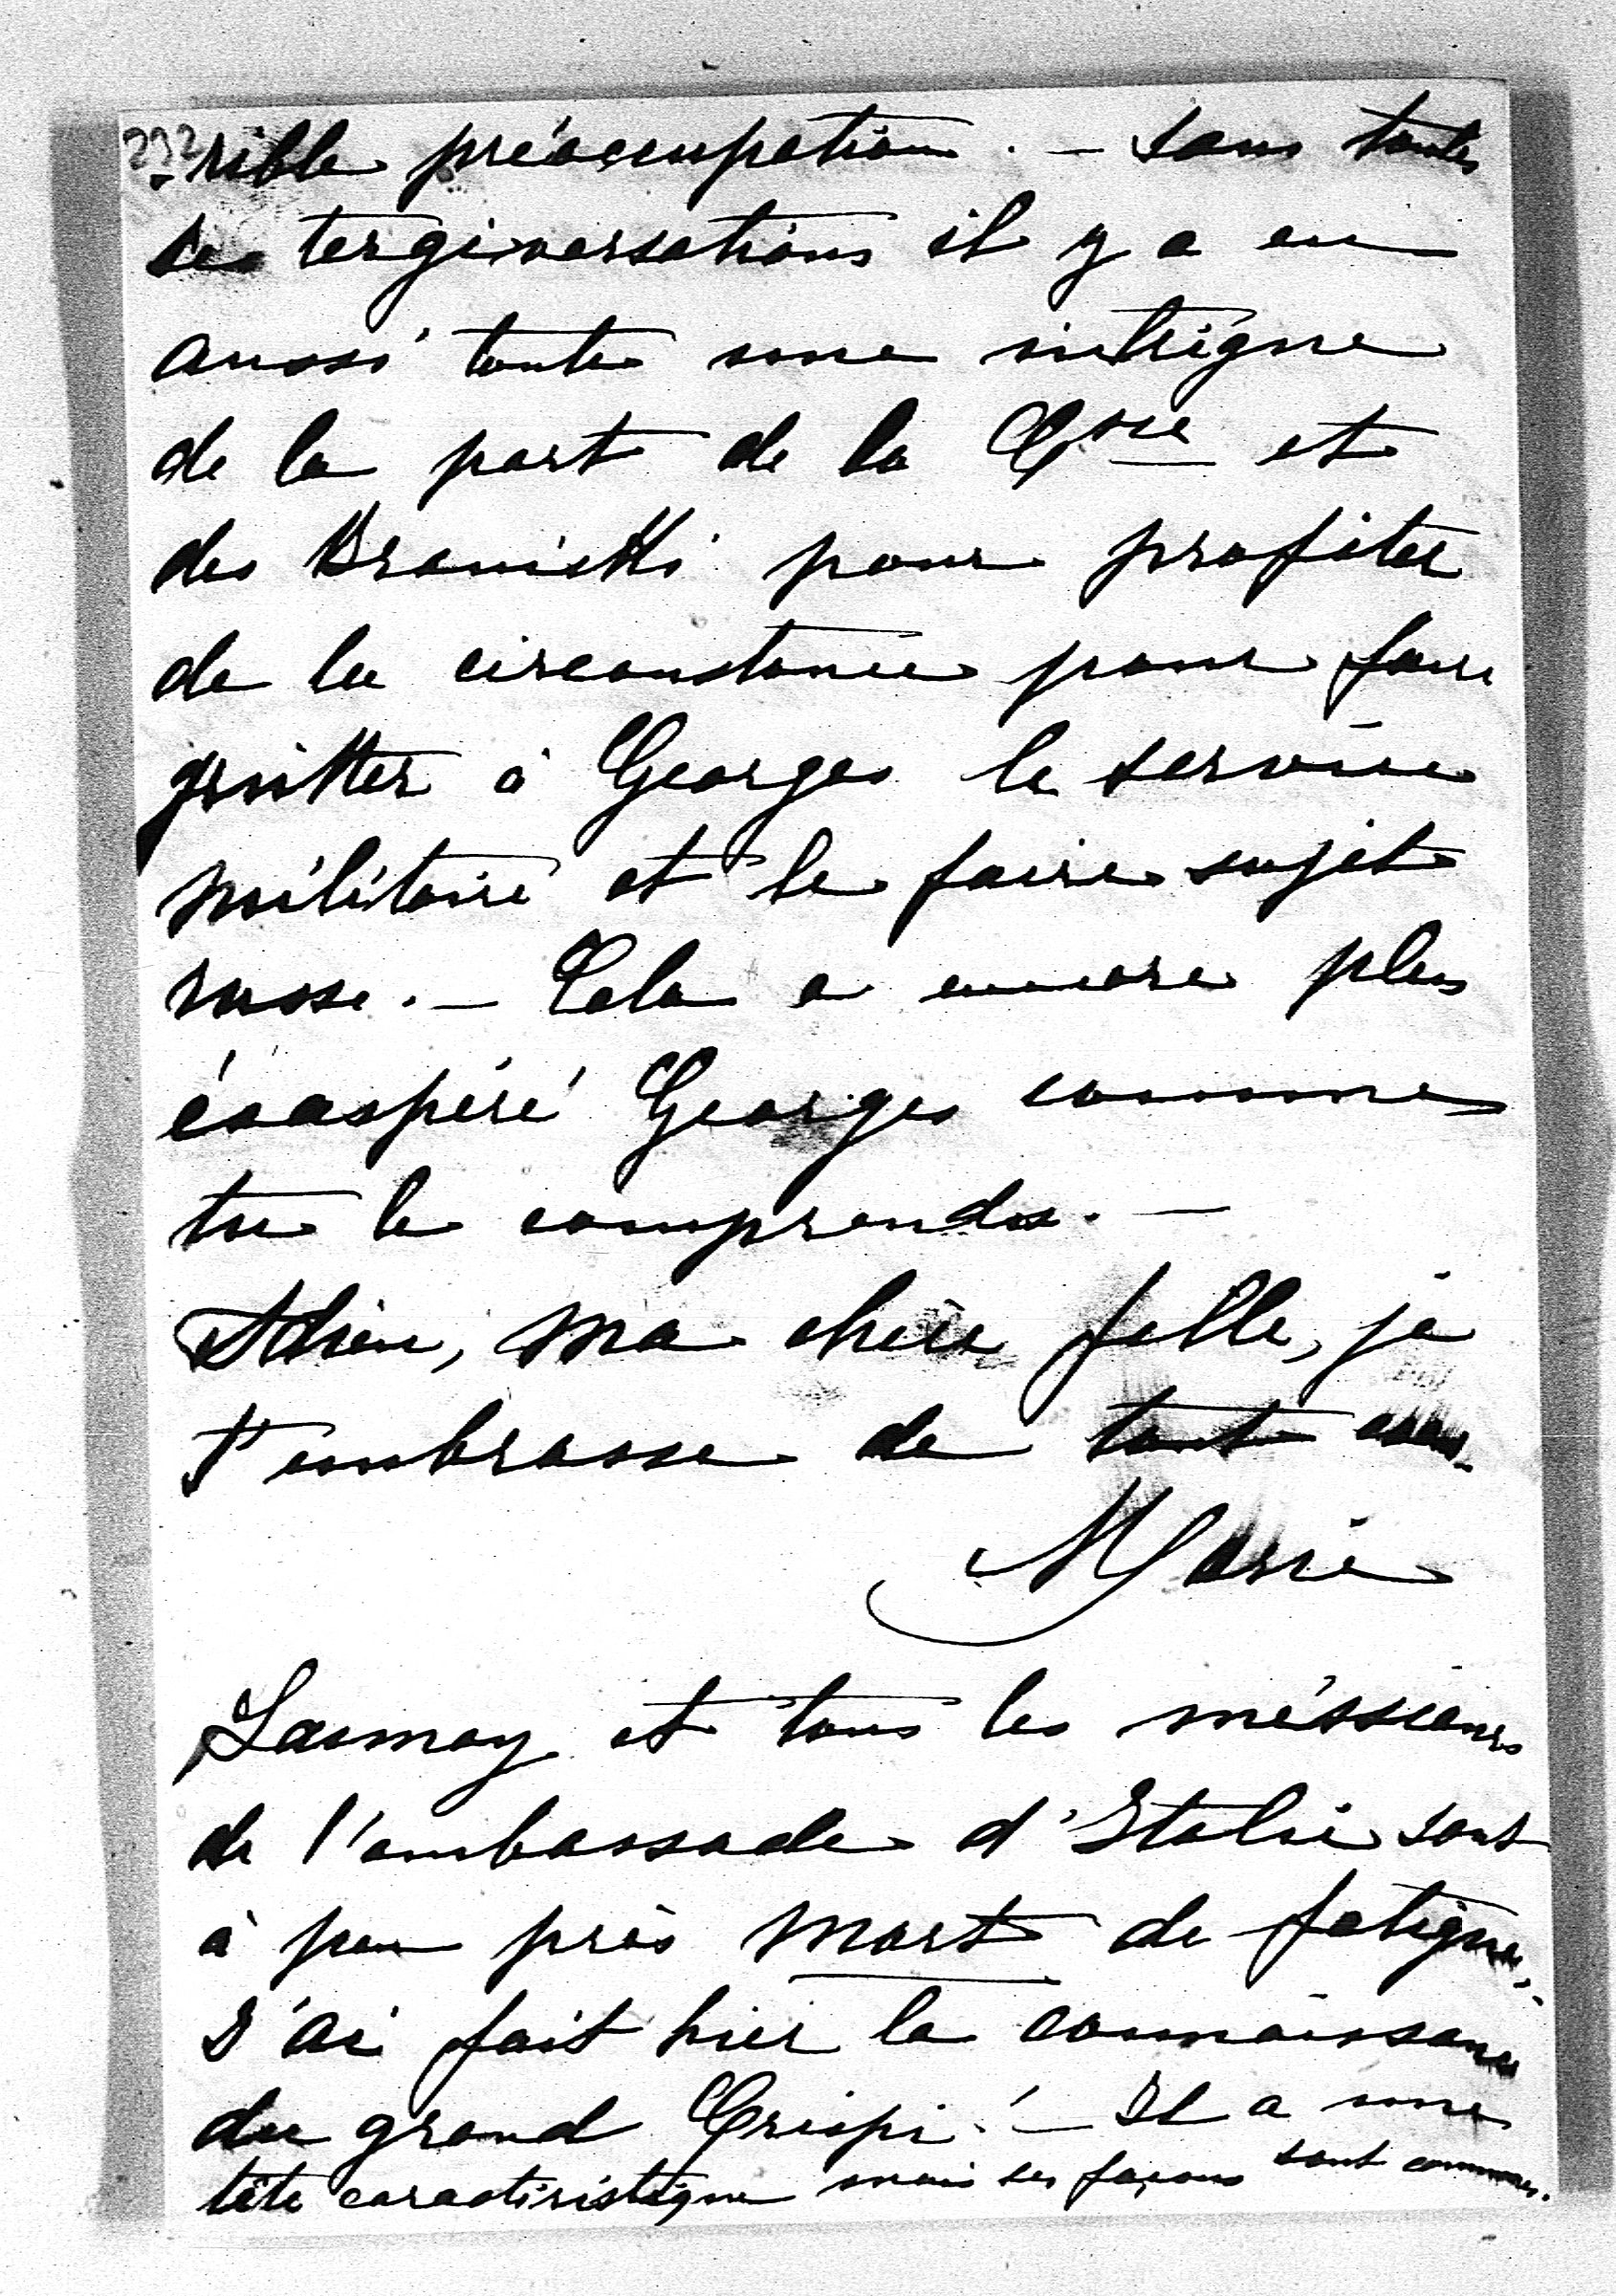 232
-rible préoccupation. – Dans toutes
ses tergiversations il y a eu
aussi toute une intrigue
de la part de la Csse et
des Branicki pour profiter
de la circonstance pour faire
quitter à Georges le service
militaire et le faire sujet
russe. – Cela a encore plus
éxaspéré Georges comme
tu le comprends. –
Adieu, ma chère fille, je
t'embrasse de tout coeur.
Marie
Launay et tous les méssieurs
de l'ambassade d'Italie sont
à peu près mort de fatigue.
J'ai fait hier la connaissance
du grand Crispi! – Il a une
tête caractéristique mais ses façons sont communes.